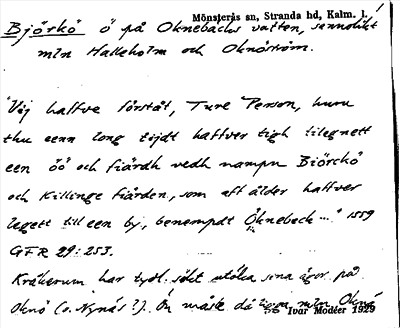 Mönsterås sn, Stranda hd, Kalm. l.
Björkö ö på Oknebäcks vatten, sannolikt
mln Halleholm och Oknöström.
"Vij haffve förståt, Ture Person, huru
thu eenn long tijdt haffver tigh tilegnett
een öö och fiärdh vedh nampn Biörckö
och Killinge fiärden, som aff ålder haffver
legett till een by, benempdt Åknebeck ..." 1559
GFR 29:253.
Kråkerum har tydl. sökt utöka sina ägor på
Oknö (o. Nynäs?). Ön måste då ligga mln Oknö
Ivar Modéer 1929